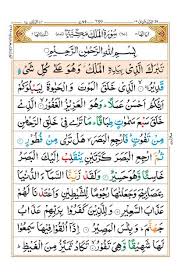 سُوْرَةُ الْمُلْكِ مَكِّيَّةٌ
بِسْمِ اللهِ الرَّحْمٰنِ الرَّحِيْمِ
تَبٰرَكَ الَّذِيْ بِيَدِهِ الْمُلْكُ وَهُوَ عَلٰى كُلِّ شَيْءٍ
قَدِيْرُ ۙ الَّذِيْ خَلَقَ الْمَوْتَ وَالْحَيٰوةَ لِيَبْلُوَكُمْ
اَيُّكُمْ اَحْسَنُ عَمَلًا وَهُوَ الْعَزِيْزُ الْغَفُوْرُ ۙ الَّذِيْ
خَلَقَ سَبْعَ سَمٰوٰتٍ طِبَاقًا مَا تَرٰى فِيْ خَلْقِ الرَّحْمٰنِ
مِنْ تَفٰوُتٍ فَارْجِعِ الْبَصَرَ هَلْ تَرٰى مِنْ فُطُوْرٍ
ثُمَّ ارْجِعِ الْبَصَرَ كَرَّتَيْنِ يَنْقَلِبْ اِلَيْكَ الْبَصَرُ
خَاسِئًا وَّهُوَ حَسِيْرٌ وَلَقَدْ زَيَّنَّا السَّمَآءَ الدُّنْيَا
بِمَصَابِيْحَ وَجَعَلْنٰهَا رُجُوْمًا لِّلشَّيٰطِيْنِ وَاَعْتَدْنَا لَهُمْ
عَذَابَ السَّعِيْرِ وَلِلَّذِيْنَ كَفَرُوْا بِرَبِّهِمْ عَذَابُ
جَهَنَّمَ وَبِئْسَ الْمَصِيْرُ اِذَآ اُلْقُوْا فِيْهَا سَمِعُوْا
لَهَا شَهِيْقًا وَّهِيَ تَفُوْرُ ۙ تَكَادُ تَمَيَّزُ مِنَ الْغَيْظِ